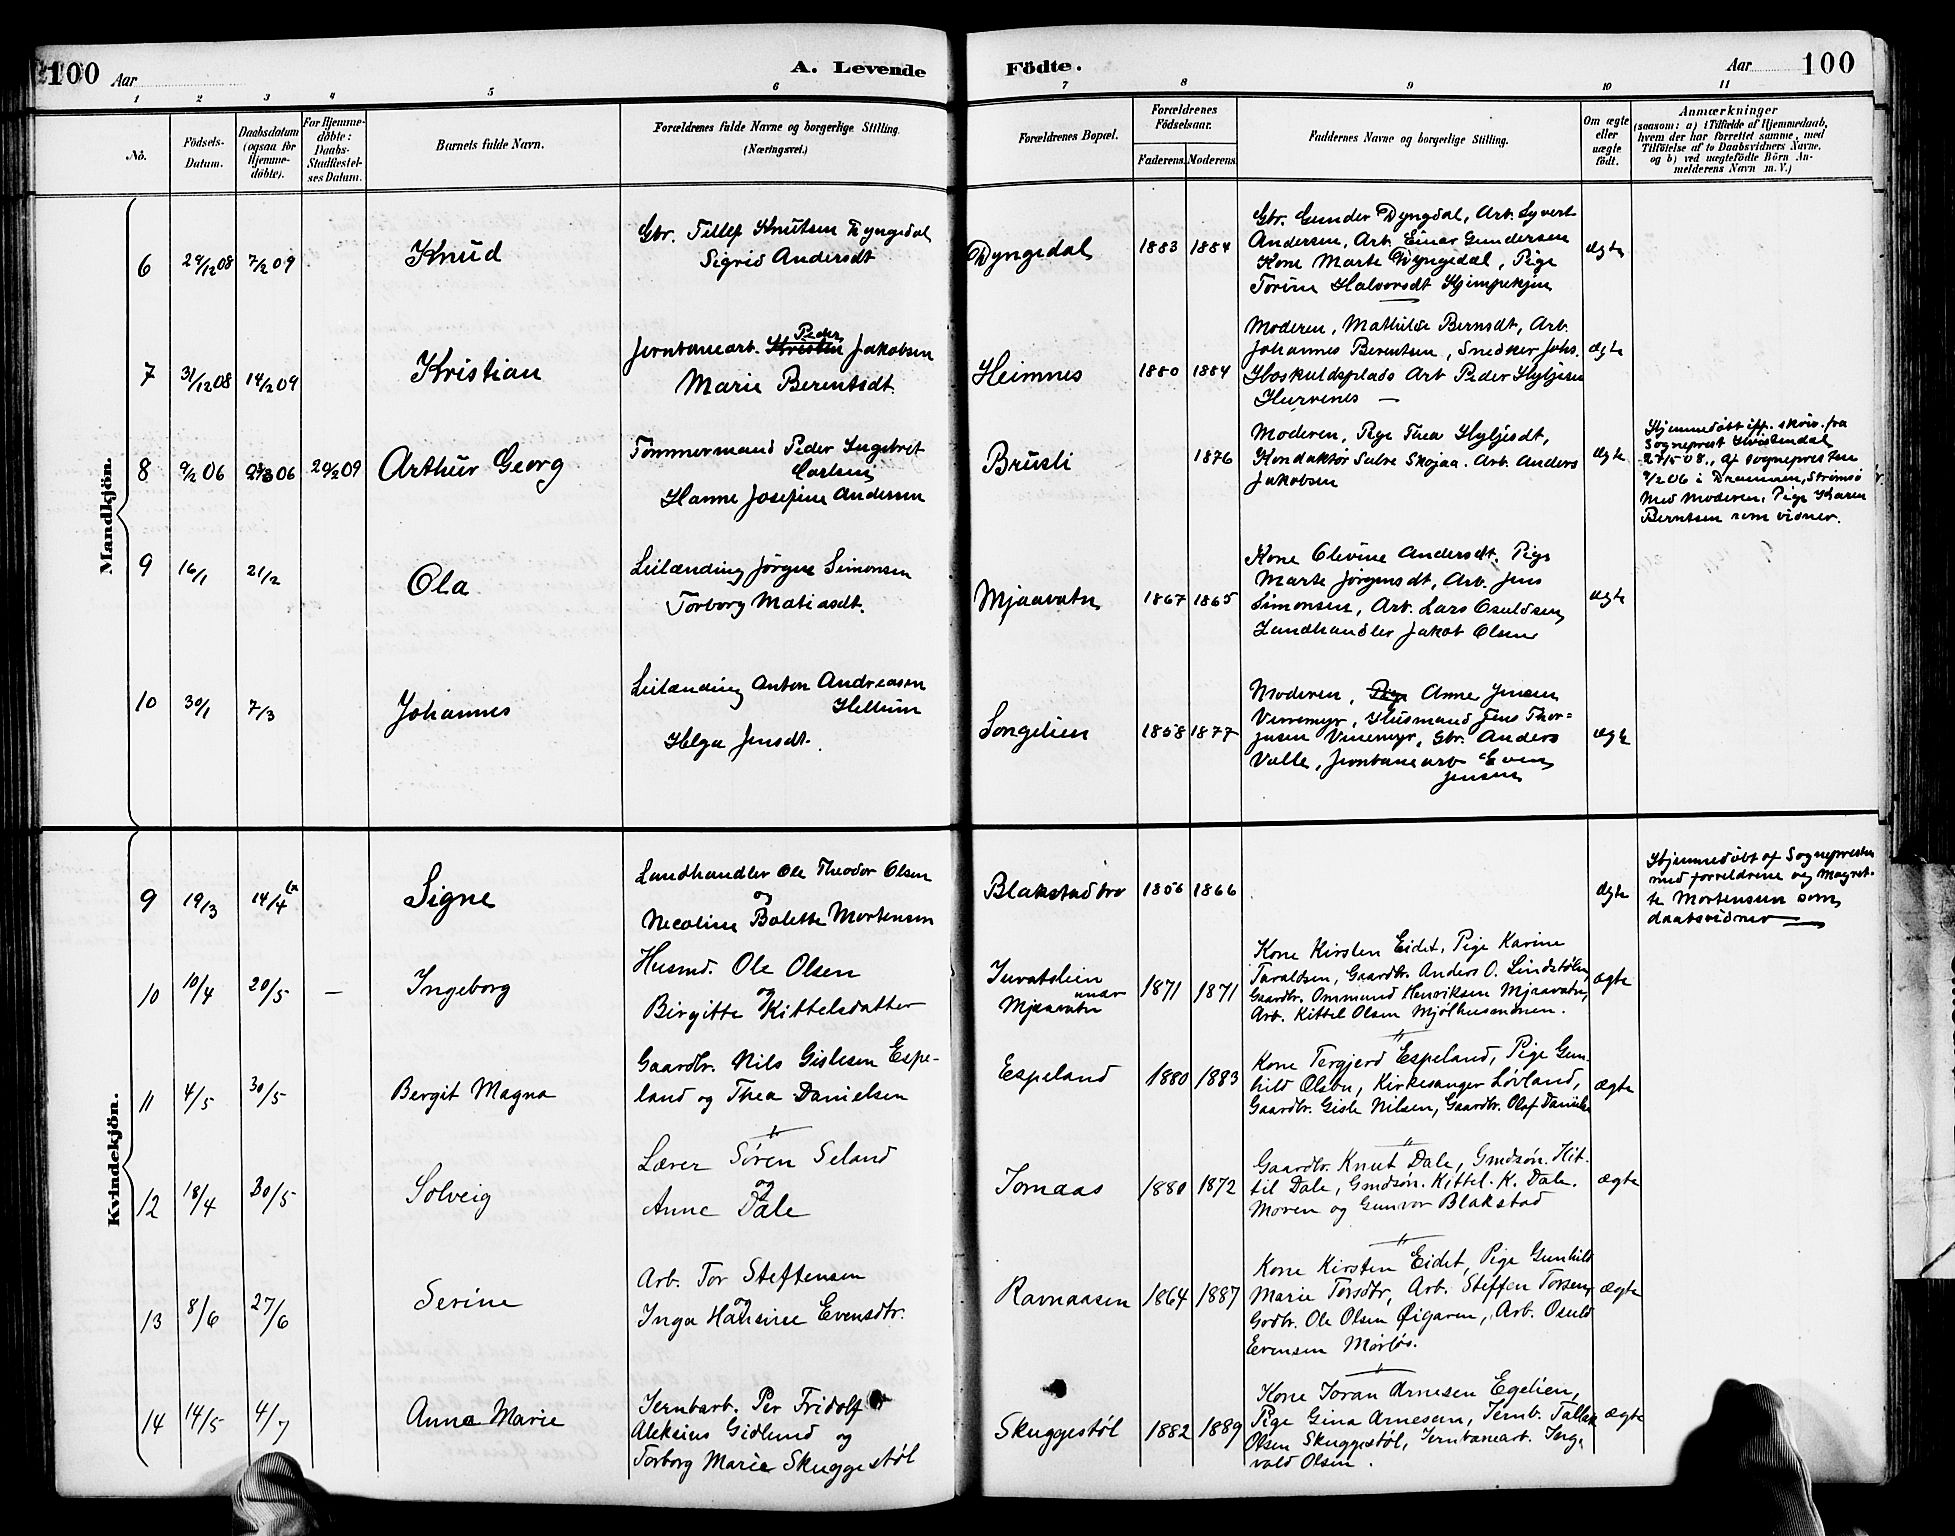 100 Aar
A. Levende
Födte.
Aar 100
1 2 3 4 5 6 7 8 9 10 11
No.
Födsels-
Datum.
Daabsdatum
(ogsaa for
Hjemme-
döbte).
For Hjemme-
döbte:
Daabs-
Stadfæstel-
ses Datum.
Barnets fulde Navn.
Forældrenes fulde Navne og borgerlige Stilling.
(Næringsvei.)
Forældrenes Bopæl.
Forældrenes
Födselsaar.
Faderens. Moderens.
Faddernes Navne og borgerlige Stilling.
Om ægte
eller
uægte
födt.
Anmærkninger
(saasom: a) i Tilfælde af Hjemmedaab,
hvem der har forrettet samme, med
Tilföielse af to Daabsvidners Navne.
og b) ved uægtefödte Börn An-
melderens Navn m. V.)
Mandkjön.
6 29/12 08 7/2 09
Knud
Gbr. Tellef Knutsen Dyngedal
Sigrid Andersdt
Dyngedal
1883 1884
Gbr. Gunder Dyngdal, Arb. Syvert
Andersen, Arb. Einar Gundersen
Kone Marte Dyngedal, Pige
Torine Halvorsdt Kjempekjen
ægte
7 31/12 08 14/2 09
Kristian
Peder
Jernbanearb. Kristen Jakobsen
Marie Berentsdt.
Heimnes
1880 1884
Moderen, Mathilde Bernsdt, Arb.
Johannes Berentsen, Snedker Johs.
Hoskuldsplads Arb Peder
Hurvenes —
ægte
8 9/2 06 06 20/2 09
Arthur Georg
Tømmermand Peder Ingebret
Carlsen
Hanne Josefine Andersen
Brusli
1876
Moderen, Pige Thea
Konduktør Salve Skojaa. Arb. Anders
Jakobsen
ægte
Hjemmedøbt ifp. skriv. fra
Sogneprest
27/5 08., af sognepresten
9/2 06 i Drammen, Strømsø
Med moderen, Pige Karen
Berntsen som vidner.
9 16/1 21/2
Ola
Leilænding Jørgen Simonsen
Torborg Matiasdt.
Mjaavatn
1867 1865
Kone Olevine Andersdt. Pige
Marte Jørgensdt, Arb. Jens
Simonsen, Arb. Lars Osuldsen
Landhandler Jakob Olsen
ægte
10 30/1 7/3
Johannes
Leilænding Anton Andreasen
Hellum
Helga Jensdt.
Songelien
1858 1877
Moderen, Pige Anne Jensen
Verremyr, Husmand Jens Thor-
jusen Verremyr, Gbr. Anders
Valle, Jernbanearb Even
Jensen
ægte
Kvindekjön.
9 19/3 14/4
Signe
Landhandler Ole Theodor Olsen
og
Nicoline Bolette Mortensen
Blakstadbro
1856 1866
ægte
Hjemmedøbt af Sognepresten
med forældrene og Magret-
te Mortensen som
daabsvidner
10 10/4 20/5 —
Ingeborg
Husmd. Ole Olsen
og
Birgitte Kittelsdatter
under
Mjaavatn
1871 1871
Kone Kirsten Eidet, Pige Karine
Taraldsen, Gaardbr. Anders O. Lindstølen,
Gaardbr. Ommund Henriksen Mjaavatn,
Arb. Kittel Olsen Mjølhusmonen.
ægte
11 4/5 30/5
Bergit Magna
Gaardbr. Nils Gislesen Espe-
land og Thea Danielsen
Espeland
1880 1883
Kone Tergjerd Espeland, Pige Gun-
hild Olsen, Kirkesanger Løvland,
Gaardbr. Gisle Nilsen, Gaardbr. Olaf Daniels
ægte
12 18/4 30/5
Solveig
Lærer Søren Seland
og
Anne Dale
Tomaas
1880 1872
Gaardbr. Knut Dale, Gmdsøn. Kit-
til Dale, Gmdsøn. Kittel. K. Dale.
Moren og Gunvor Blakstad
ægte
13 8/6 27/6
Serine
Arb. Tor Steffensen
og
Inga Hansine Evensdtr.
Ravnaasen
1864 1887
Kone Kirsten Eidet, Pige Gunhild
Marie Torsdtr, Arb. Steffen Torsen,
Grdbr. Ole Olsen Øigaren, Arb. Osuld
Evensen Mørfos.
ægte
14 14/5 4/7
Anna Marie
Jernbarb. Per Fridolf
Aleksius Gidlund og
Torborg Marie Skuggestøl
Skuggestøl
1882 1889
Kone Joran Arnesen Egelien,
Pige Gina Arnesen, Jernb. Tallak
Olsen Skuggestøl, Jernbanearb. Ing-
vald Olsen.
ægte